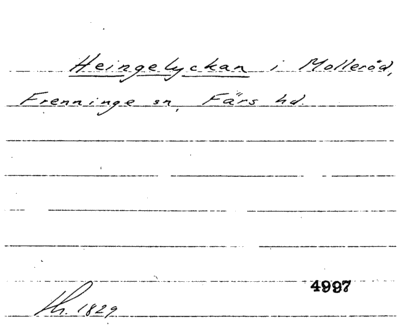 Heingelyckan i Molleröd,
Frenninge sn, Färs hd.
4997
1829